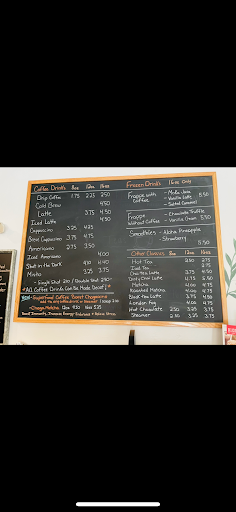 Coffee Drinks 8oz 12oz 16oz
Drip Coffee 1.75 2.25 2.50
Cold Brew 4.50
Latte 3.75 4.50
Iced Latte 4.50
Cappuccino 3.25 4.25
Breve Cappuccino 3.75 4.75
Americano 2.75 3.50
Iced Americano 4.00
Shot in the Dark 4.10 4.40
Misto 3.25 3.75
- Single Shot 2.00 / Double Shot 2.50 -
* All Coffee Drinks Can Be Made Decaf *
Superfood Coffee Boost Chagaccino
- Chaga Matcha 12oz 16oz 5.25
Boost Immunity, Increase Energy Endurance + Relieve Stress
Frozen Drinks 16oz Only
Frappe with Coffee - Mocha Java 5.50
- Vanilla Latte
- Salted Caramel
Frappe Without Coffee - Chocolate Truffle
- Vanilla Cream 5.50
Smoothies - Aloha Pineapple
- Strawberry
5.50
Other Flavours 8oz 12oz 16oz
Hot Tea 2.50 2.75
Iced Tea 2.75
Chai Tea Latte 3.75 4.50
Dirty Chai Latte 4.75
Matcha 4.00 4.75
Roasted Matcha 4.00 4.75
Black Tea Latte 3.75 4.50
London Fog 4.00 4.75
Hot Chocolate 2.50 3.25 3.75
Steamer 2.50 3.25 3.75